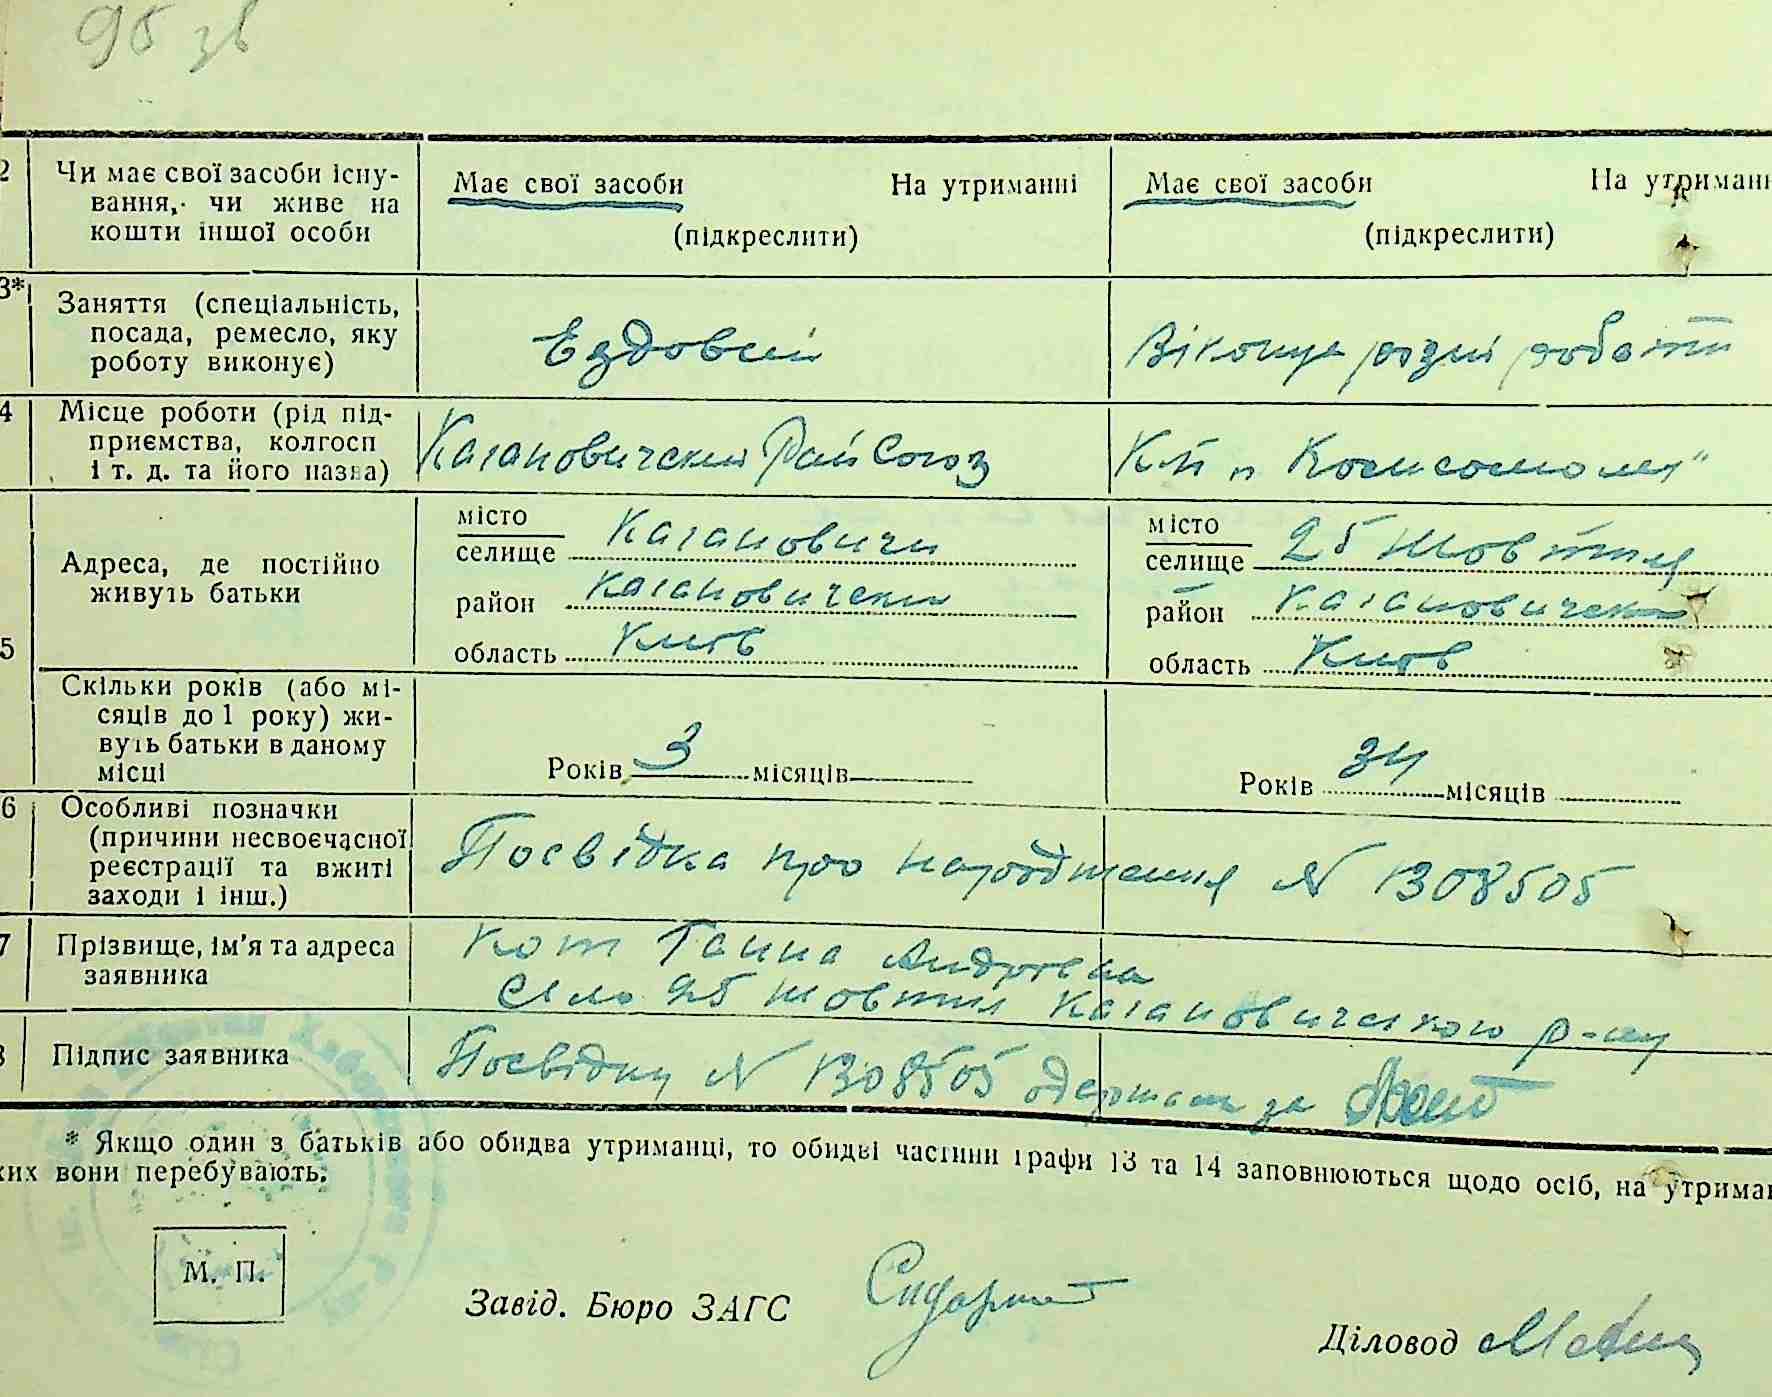 95 зв
2 Чи має свої засоби існу-
вання, чи живе на
кошти іншої особи
Має свої засоби На утриманні
(підкреслити)
Має свої засоби На утриманн
(підкреслити)
3* Заняття (спеціальність,
посада, ремесло, яку
роботу виконує)
Ездовий
Віконує різні роботи
4 Місце роботи (рід під-
приємства, колгосп
і т. д. та його назва)
Кагановический РайСоюз
К-п „Комсомолец"
5 Адреса, де постійно
живуть батьки
місто
селище Кагановичи
район Кагановически
область Київ
місто
селище 25 Жовтня
район Кагановически
область Київ
Скільки років (або мі-
сяців до 1 року) жи-
вуть батьки в даному
місці
Років 3 місяців
Років 34 місяців
6 Особливі позначки
(причини несвоєчасної
реєстрації та вжиті
заходи і інш.)
Посвідка про народження № 1308505
7 Прізвище, ім'я та адреса
заявника
Кот Ганна Андреевна
село 25 Жовтня Кагановичського р-ну
8 Підпис заявника
Посвідку № 1308505 одержала за
* Якщо один з батьків або обидва утриманці, то обидві частини графи 13 та 14 заповнюються щодо осіб, на утриман
ких вони перебувають.
М. П.
Завід. Бюро ЗАГС
Діловод